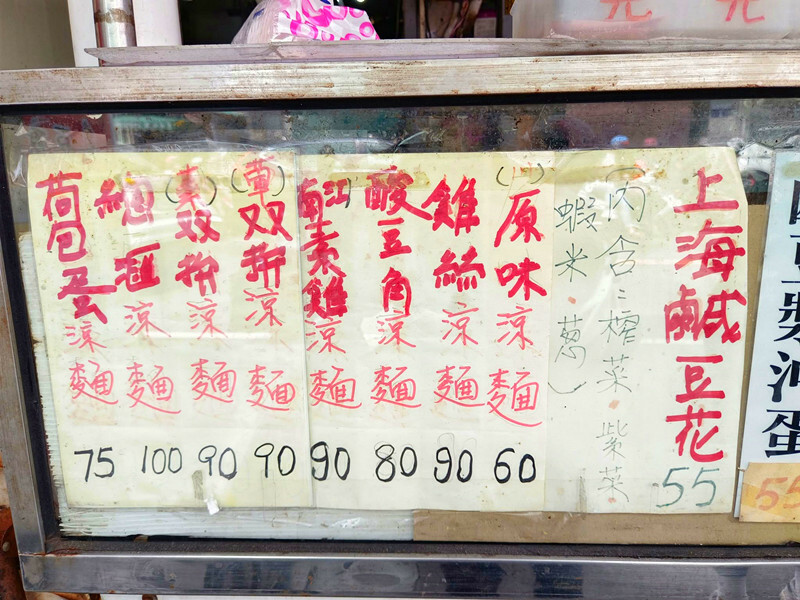 元 元
上海鹹豆花 55
(內含:榨菜·紫菜
蝦米·蔥)
原味涼麵 60
雞絲涼麵 90
酸豆角涼麵 80
江南素雞涼麵 90
(葷)双拼涼麵 90
(素)双拼涼麵 90
總滙涼麵 100
荷包蛋涼麵 75
豆漿沖蛋
55